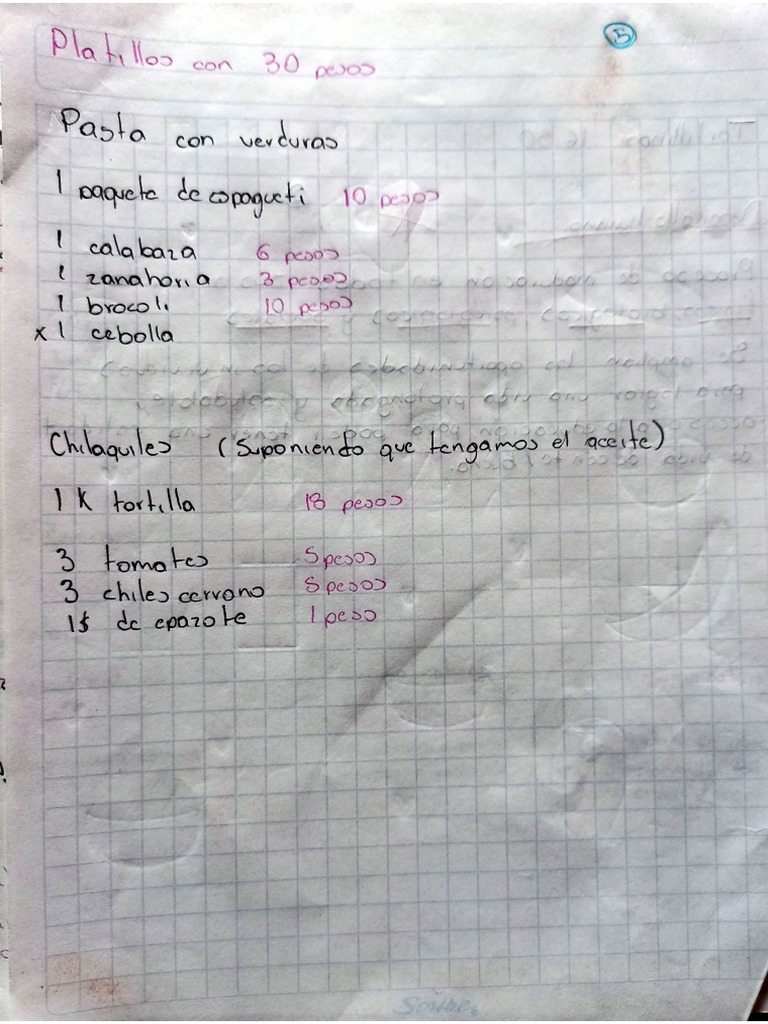 Platillos con 30 pesos
5
Pasta con verduras
1 paquete de espagueti 10 pesos
1 calabaza 6 pesos
1 zanahoria 3 pesos
1 brocoli 10 pesos
x 1 cebolla
Chilaquiles (Suponiendo que tengamos el aceite)
1 K tortilla 18 pesos
3 tomates 5 pesos
3 chiles serrano 5 pesos
1$ de epazote 1 peso
Scribe